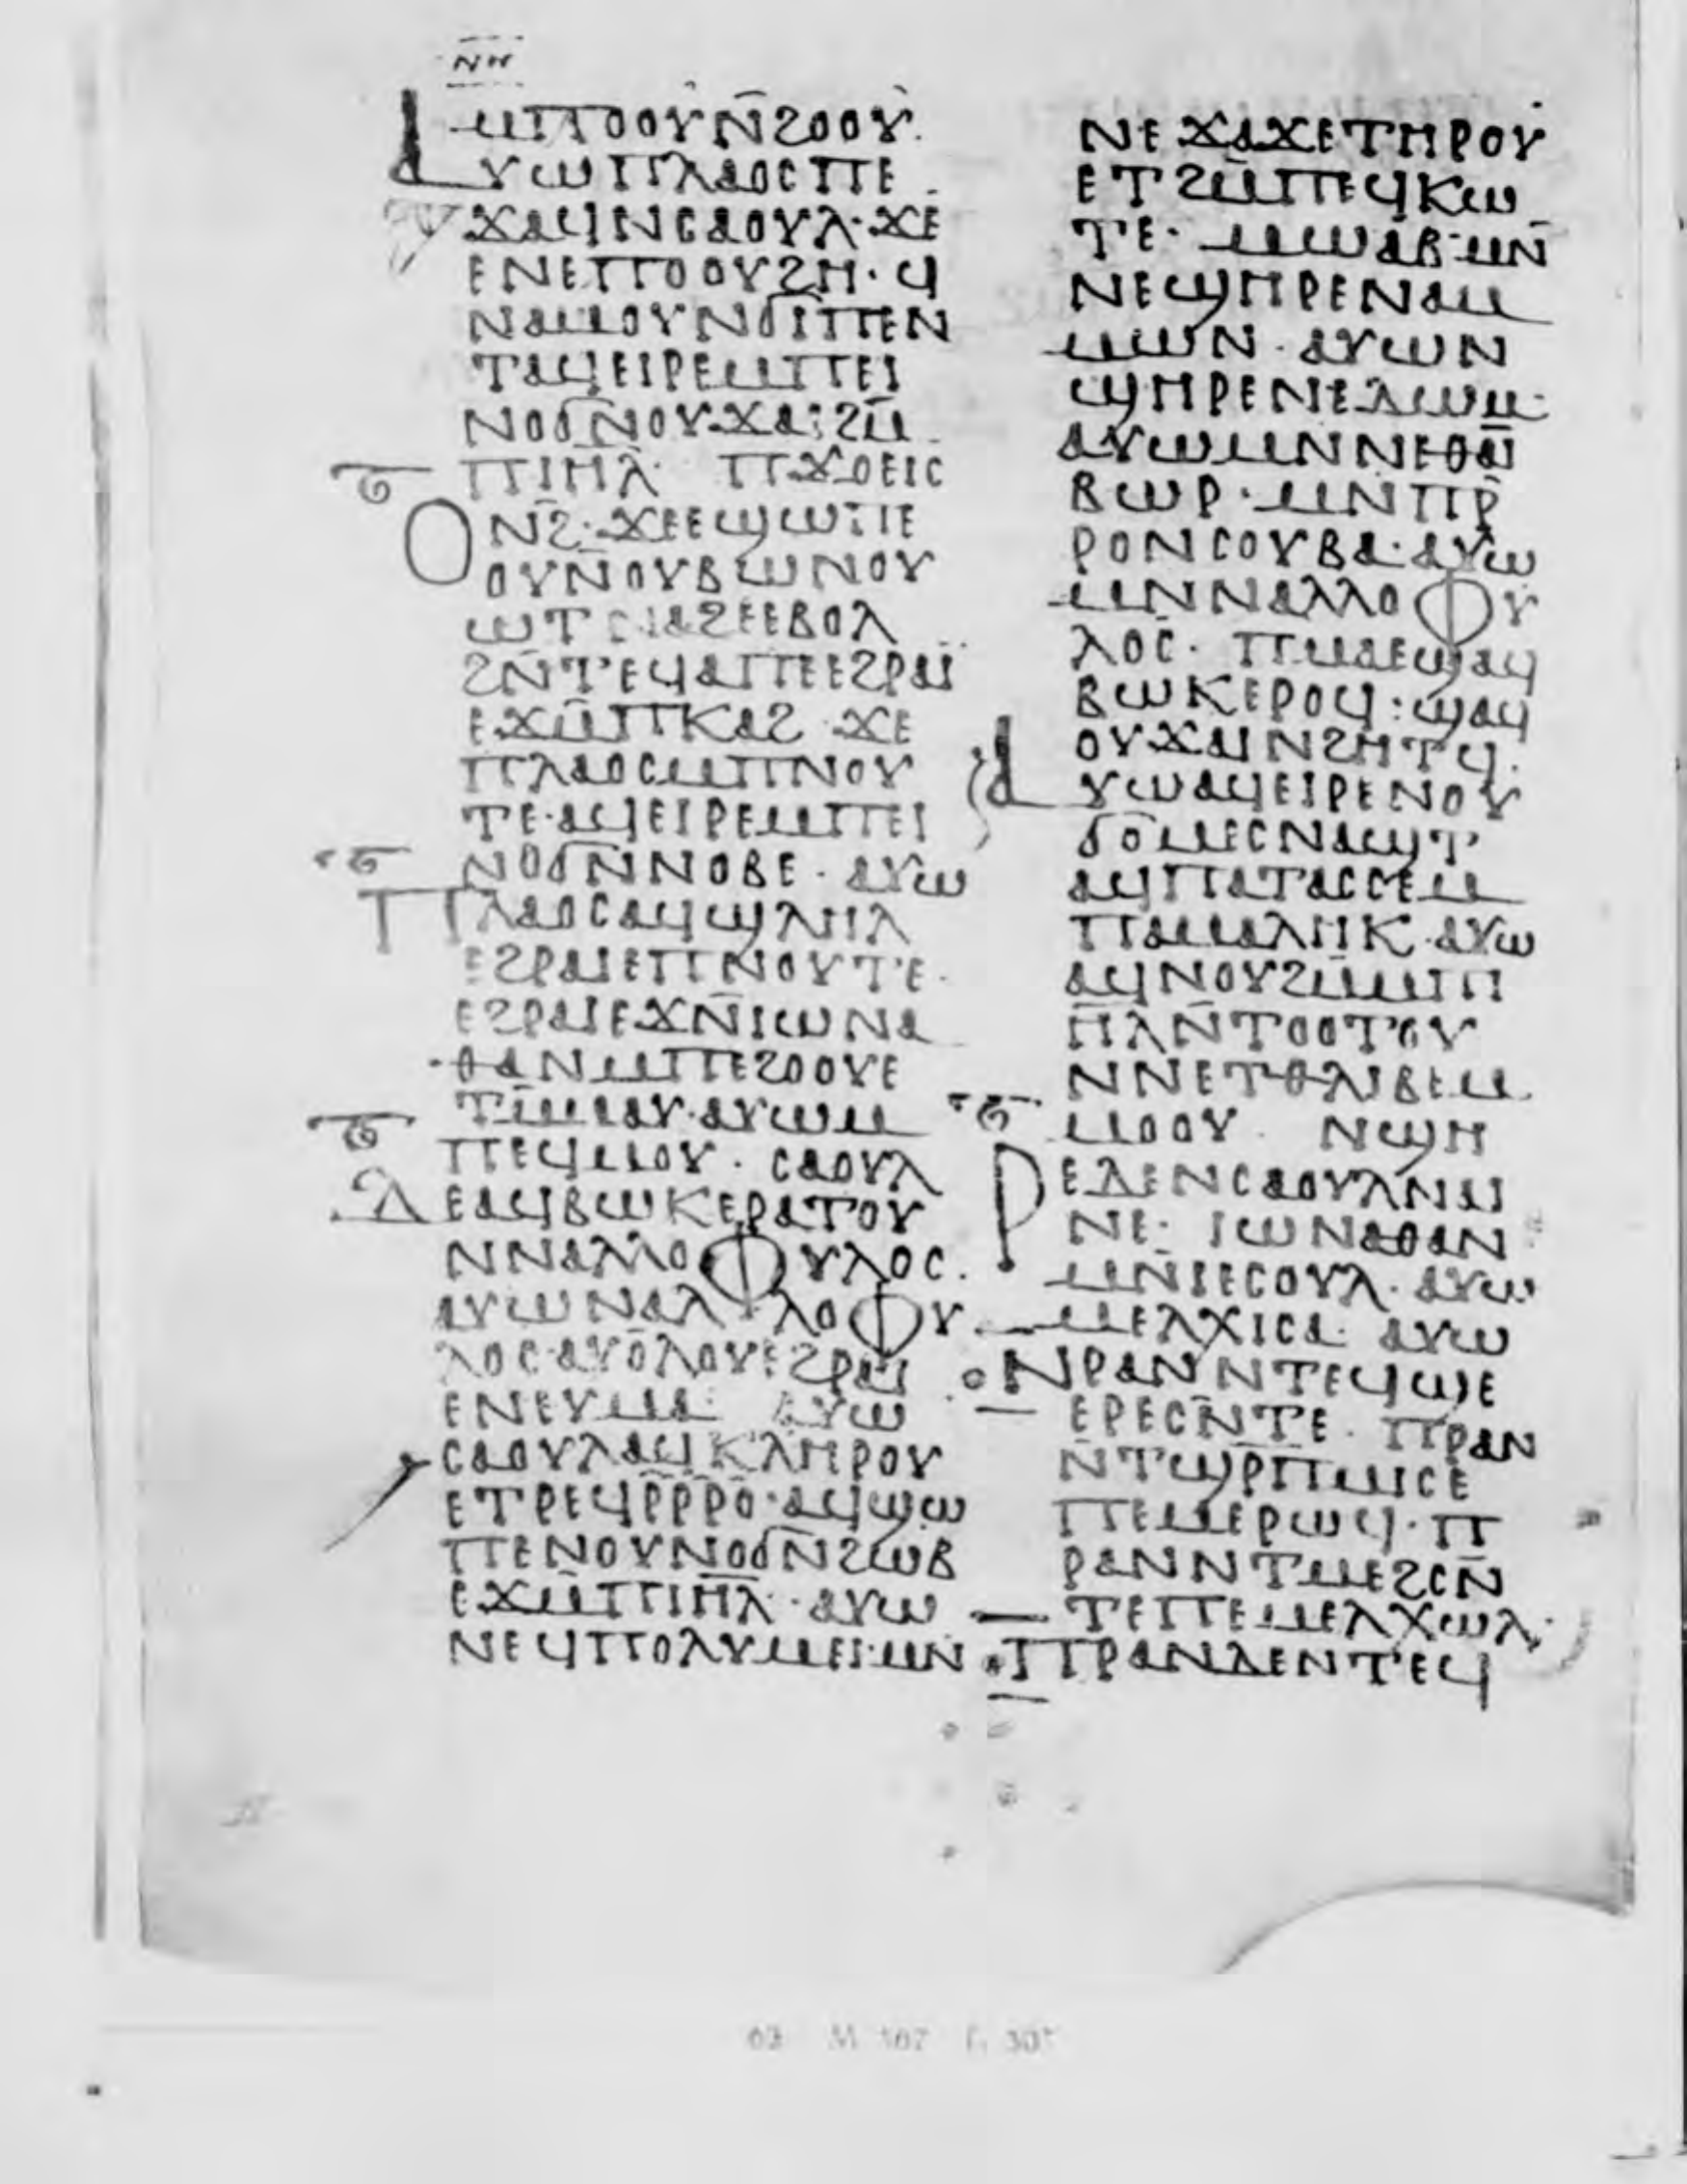 ⲛⲏ
ⲙⲡⲟⲟⲩⲛ̄ϩⲟⲟⲩ.
ⲁⲩⲱⲡⲗⲁⲟⲥⲡⲉ
ϫⲁϥⲛⲥⲁⲟⲩⲗ·ϫⲉ
ⲉⲛⲉⲡⲟⲟⲩϩⲏ·ϥ
ⲛⲁⲙⲟⲩⲛϭⲓⲡⲉⲛ
ⲧⲁϥⲉⲓⲣⲉⲙⲡⲉⲓ
ⲛⲟϭⲛ̄ⲟⲩϫⲁⲓϩⲙ̄
ⲡⲓⲏ̄ⲗ· ⲡϫⲟⲉⲓⲥ
ⲟⲛϩ̄·ϫⲉⲉϣⲱⲡⲉ
ⲟⲩⲛ̄ⲟⲩⲃⲱⲛⲟⲩ
ⲱⲧ ⲛⲁϩⲉⲉⲃⲟⲗ
ϩⲛ̄ⲧⲉϥⲁⲡⲉⲉϩⲣⲁⲓ̈
ⲉϫⲙ̄ⲡⲕⲁϩ·ϫⲉ
ⲡⲗⲁⲟⲥⲙⲡⲛⲟⲩ
ⲧⲉ·ⲁϥⲉⲓⲣⲉⲙⲡⲉⲓ
ⲛⲟϭⲛ̄ⲛⲟⲃⲉ·ⲁⲩⲱ
ⲡⲗⲁⲟⲥⲁϥϣⲗⲏⲗ
ⲉϩⲣⲁⲓⲉⲡⲛⲟⲩⲧⲉ·
ⲉϩⲣⲁⲓⲉϫⲛ̄ⲓⲱⲛⲁ
ⲑⲁⲛⲙⲡⲉϩⲟⲟⲩⲉ
ⲧⲙ̄ⲙⲁⲩ·ⲁⲩⲱⲙ
ⲡⲉϥⲙⲟⲩ·ⲥⲁⲟⲩⲗ
ⲇⲉⲁϥⲃⲱⲕⲉⲣⲁⲧⲟⲩ
ⲛⲛⲁⲗⲗⲟⲫⲩⲗⲟⲥ.
ⲁⲩⲱⲛⲁⲗⲗⲟⲫⲩ
ⲗⲟⲥⲁⲩⲟ̄ⲗⲟⲩⲉϩⲣⲁⲓ
ⲉⲛⲉⲩⲙⲁ· ⲁⲩⲱ
ⲥⲁⲟⲩⲗⲁϥⲕⲗⲏⲣⲟⲩ
ⲉⲧⲣⲉϥⲣ̄ⲣ̄ⲣⲟ̄·ⲁϥϣⲱ
ⲡⲉⲛⲟⲩⲛⲟϭⲛ̄ϩⲱⲃ
ⲉϫⲙ̄ⲡⲓⲏ̄ⲗ·ⲁⲩⲱ
ⲛⲉϥⲡⲟⲗⲩⲙⲉⲓ·ⲙⲛ
ⲛⲉϫⲁϫⲉⲧⲏⲣⲟⲩ
ⲉⲧϩⲙ̄ⲡⲉϥⲕⲱ
ⲧⲉ·ⲙⲱⲁⲃ·ⲙⲛ̄
ⲛⲉϣⲏⲣⲉⲛⲁⲙ
ⲙⲱⲛ·ⲁⲩⲱⲛ
ϣⲏⲣⲉⲛⲉⲇⲱⲙ·
ⲁⲩⲱⲙⲛⲛⲉⲑⲁⲓ
ⲃⲱⲣ·ⲙⲛⲡⲣ̄
ⲣⲟⲛⲥⲟⲩⲃⲁ·ⲁⲩⲱ
ⲙⲛⲛⲁⲗⲗⲟⲫⲩ
ⲗⲟⲥ̄· ⲡⲙⲁⲉϣⲁϥ
ⲃⲱⲕⲉⲣⲟϥ:ϣⲁϥ
ⲟⲩϫⲁⲓⲛϩⲏⲧϥ.
ⲁⲩⲱⲁϥⲉⲓⲣⲉⲛⲟⲩ
ϭⲟ̄ⲙⲉⲥⲛⲁϣⲧ
ⲁϥⲡⲁⲧⲁⲥⲥⲉⲙ
ⲡⲁⲙⲁⲗⲏⲕ·ⲁⲩⲱ
ⲁϥⲛⲟⲩϩⲙ̄ⲙⲡⲓ
ⲏ̄ⲗⲛ̄ⲧⲟⲟⲧⲟⲩ
ⲛⲛⲉⲧⲑⲗⲓⲃⲉⲙ
ⲙⲟⲟⲩ· ⲛϣⲏ
ⲣⲉⲇⲉⲛⲥⲁⲟⲩⲗⲛⲁⲓ
ⲛⲉ· ⲓⲱⲛⲁⲑⲁⲛ
ⲙⲛ̄ⲓⲉⲥⲟⲩⲗ·ⲁⲩⲱ
ⲙⲉⲗⲭⲓⲥⲁ· ⲁⲩⲱ
ⲛⲣⲁⲛⲛⲧⲉϥϣⲉ
ⲉⲣⲉⲥⲛ̄ⲧⲉ· ⲡⲣⲁⲛ
ⲛ̄ⲧϣⲣⲡⲙⲓⲥⲉ
ⲡⲉⲙⲉⲣⲱϥ·ⲡ
ⲣⲁⲛⲛⲧⲙⲉϩⲥⲛ̄
ⲧⲉⲡⲉⲙⲉⲗⲭⲱⲗ·
ⲡⲣⲁⲛⲇⲉⲛⲧⲉϥ